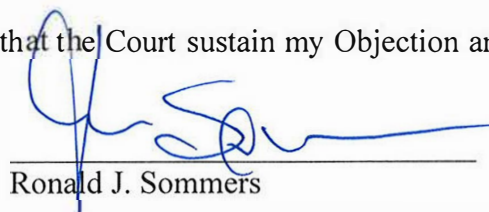 that the Court sustain my Objection an
Ronald J. Sommers